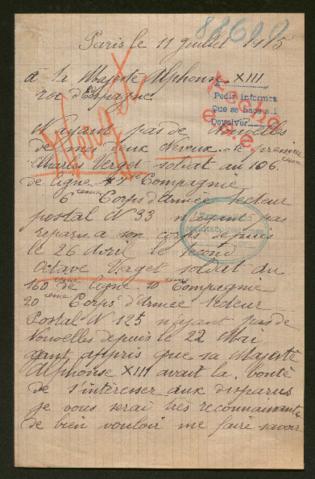 88699
Paris le 11 juillet 1915
à Sa Majesté Alphonse XIII
roi d'Espagne
Pedir informes
Que se busque
Devolver
Hecho
N'ayant pas de nouvelles
de mes deux neveux le premier
Charles Verget soldat au 106
de ligne 7 eme Compagnie
6 eme Corps d'Armée secteur
postal N° 33 n'ayant pas
reparu a son corps depuis
le 26 Avril le second
Octave Verget soldat du
160 eme de ligne 10 eme Compagnie
20 eme Corps d'Armée secteur
Postal N° 125 n'ayant pas de
nouvelles depuis le 22 Mai
ayant appris que sa Majesté
Alphonse XIII avait la bonté
de s'intéresser aux disparus
je vous serai très reconnaissante
de bien vouloir me faire savoir